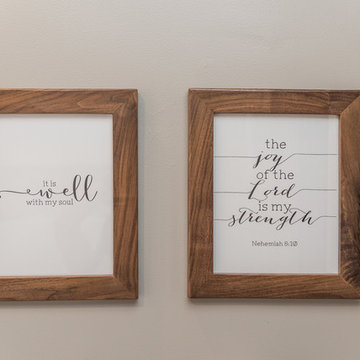 it is
well
with my soul
the
joy
of the
Lord
is my
strength
Nehemiah 8:10